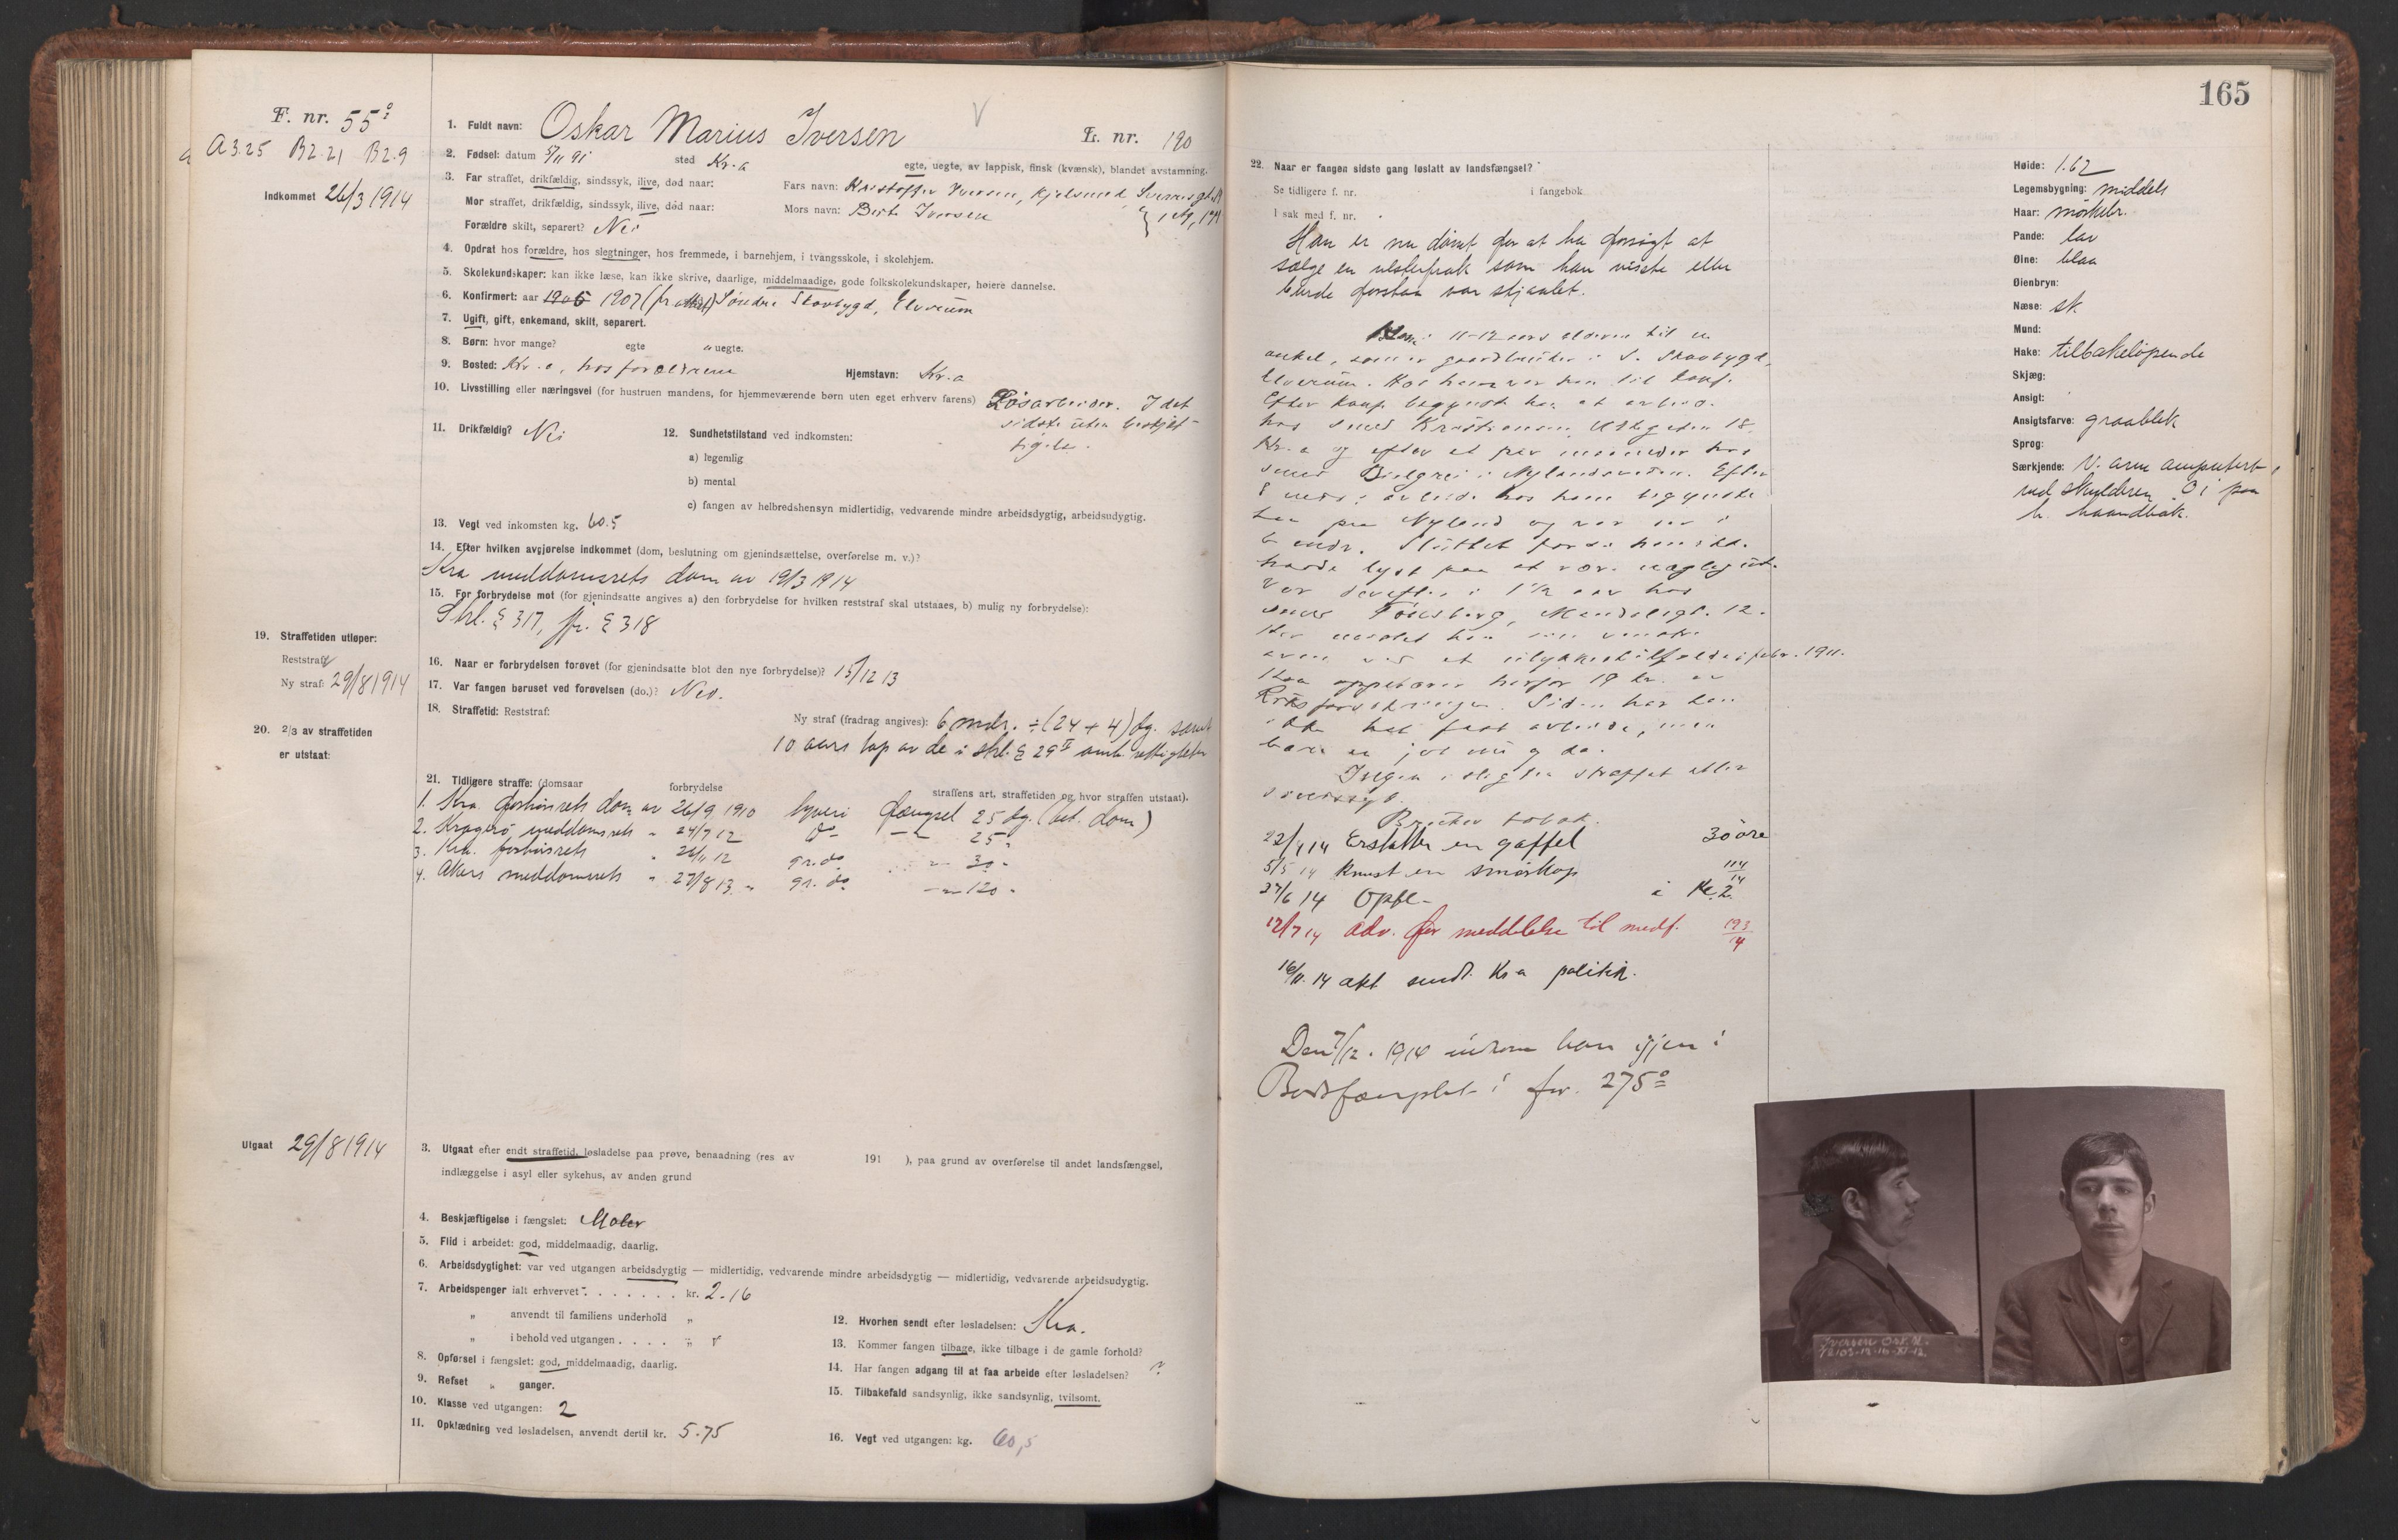 165
F. nr. 55
A 3.25 B2.21 B2.9
Indkommet 26/3 1914
1. Fuldt navn: Oskar Marius Iversen
L. nr. 190
2. Fødsel: datum 5/11 91 sted Kr.a
egte, uegte, av lappisk, finsk (kvænsk), blandet avstamning.
3. Far straffet, drikfældig, sindssyk, ilive, død naar:
Fars navn: Kristoffer Iversen, Kjelsmed,
Mor straffet, drikfældig, sindssyk, ilive, død naar:
Mors navn: Berte Iversen
Forældre skilt, separert? Nei
4. Opdrat hos forældre, hos slegtninger, hos fremmede, i barnehjem, i tvangsskole, i skolehjem.
5. Skolekundskaper: kan ikke læse, kan ikke skrive, daarlige, middelmaadige, gode folkskolekundskaper, høiere dannelse.
6. Konfirmert: aar 1906 1907 Søndre Skovbygd, Elverum
7. Ugift, gift, enkemand, skilt, separert.
8. Børn: hvor mange? egte " uegte.
9. Bosted: Kr.a, hos forældrene Hjemstavn: Kr.a
10. Livsstilling eller næringsvei (for hustruen mandens, for hjemmeværende børn uten eget erhverv farens) Løsarbeider. I det
sidste uten beskjæf-
tigelse.
11. Drikfældig? Nei
12. Sundhetstilstand ved indkomsten:
a) legemlig
b) mental
c) fangen av helbredshensyn midlertidig, vedvarende mindre arbeidsdygtig, arbeidsudygtig.
13. Vegt ved inkomsten kg. 60.5
14. Efter hvilken avgjørelse indkommet (dom, beslutning om gjenindsættelse, overførelse m. v.)?
Kra meddomsrets dom av 19/3 1914
15. For forbrydelse mot (for gjenindsatte angives a) den forbrydelse for hvilken reststraf skal utstaaes, b) mulig ny forbrydelse):
Strl. § 317, jfr. § 318
16. Naar er forbrydelsen forøvet (for gjenindsatte blot den nye forbrydelse)? 15/12 13
17. Var fangen beruset ved forøvelsen (do.)? Nei.
18. Straffetid: Reststraf:
Ny straf (fradrag angives): 6 mdr. ÷ (24 + 4) dg. samt
10 aars tap av de i strl. § 29 II omh. rettigheter
19. Straffetiden utløper:
Reststraf:
Ny straf: 29/8 1914
20. 2/3 av straffetiden
er utstaat:
21. Tidligere straffe: (domsaar forbrydelse straffens art, straffetiden og hvor straffen utstaat).
1. Kra. forhørsrets dom av 26/9 1910 tyveri fængsel 25 dg. (bet. dom)
2. Kragerø meddomsrets " 24/7 12 do 25 "
3. Kra. forhørsrets " 26/11 12 gr. do 30 "
4. Akers meddomsrets " 27/8 13 " gr. do 120 "
Utgaat 29/8 1914
3. Utgaat efter endt straffetid, løsladelse paa prøve, benaadning (res av 191 ), paa grund av overførelse til andet landsfængsel,
indlæggelse i asyl eller sykehus, av anden grund
4. Beskjæftigelse i fængslet: Maler
5. Flid i arbeidet: god, middelmaadig, daarlig.
6. Arbeidsdygtighet: var ved utgangen arbeidsdygtig — midlertidig, vedvarende mindre arbeidsdygtig — midlertidig, vedvarende arbeidsudygtig.
7. Arbeidspenger ialt erhvervet . . . . . . . kr. 2.16
" anvendt til familiens underhold "
" i behold ved utgangen . . . . "
8. Opførsel i fængslet: god, middelmaadig, daarlig.
9. Refset " ganger.
10. Klasse ved utgangen: 2
11. Opklædning ved løsladelsen, anvendt dertil kr. 5.75
12. Hvorhen sendt efter løsladelsen: Kra.
13. Kommer fangen tilbage, ikke tilbage i de gamle forhold?
14. Har fangen adgang til at faa arbeide efter løsladelsen? ?
15. Tilbakefald sandsynlig, ikke sandsynlig, tvilsomt.
16. Vegt ved utgangen: kg. 60,5
22. Naar er fangen sidste gang løslatt av landsfængsel?
Se tidligere f. nr. i fangebok
I sak med f. nr.
Han er nu dømt for at ha forsøgt at
sælge en ulsterfrak som han visste eller
burde forstaa var stjaalet.
Kom i 11-12 aars alderen til en
onkel, som er gaardbruker i S. Skovbygd,
Elverum. Hos ham var han til konf.
Efter konf. begyndte han at arbeide
hos smed Kristiansen, 18
Kr.a og efter et par maaneder hos
smed i Nylandsveien. Efter
8 mdr. arbeide hos ham begyndte
han paa Nyland og var der i
6 mdr. Sluttet fordi han ikke
hadde lyst paa at være
Var derefter i 1 1/2 aar hos
smed Tønsberg, 12.
Her mistet han sin venstre
arm ved et ulykkestilfælde i febr. 1911.
Han oppebærer herfor 19 kr. av
Riksforsikringen. Siden har han
ikke hat fast arbeide, men
bare en jobb nu og da.
Ingen i slegten straffet eller
sindssyk.
Bruker tobak.
22/4 14 Erstatter en gaffel 30 øre
5/5 14 Knust en smørkop 114/14
27/6 14 Opfl. i Kl. 2
12/7 14 adv. for meddelelse til medf. 193/14
16/11 14 akt sendt Kra politik.
Den 7/12. 1914 indkom han igjen i
Bodsfængslet i fnr. 275
Høide: 1.62
Legemsbygning: middels
Haar: mørkebr.
Pande: lav
Øine: blaa
Øienbryn:
Næse: sk.
Mund:
Hake: tilbakeløpende
Skjæg:
Ansigt:
Ansigtsfarve: graablek
Sprog:
Særkjende: V. arm amputert
ved skulderen. O i paa
h. haandbak.
Iversen Osk. M.